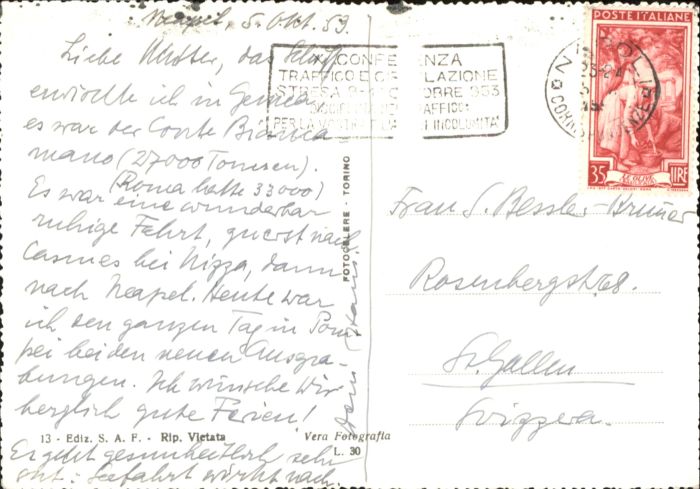 Neapel, 5. Okt. 53.
Liebe Mutter, das Schiff
erwischte ich in Genua
es war der Conte Bianca
mano (27000 Tonnen).
(Roma hatte 33000)
Es war eine wunderbar
ruhige Fahrt, zuerst nach
Cannes bei Nizza, dann
nach Neapel. Heute war
ich den ganzen Tag in Pom
pei bei den neuen Ausgra-
bungen. Ich wünsche Dir
herzlich gute Ferien!
Dein Hans.
Es geht gesundheitlich sehr
gut: Seefahrt wirkt nach.
13 - Ediz. S. A. F. - Rip. Vietata
Vera Fotografia
L. 30
FOTOCELERE - TORINO
CONFERENZA
TRAFFICO E CIRCOLAZIONE
STRESA OTTOBRE 953
TRAFFICO:
PER LA VOSTRA INCOLUMITA'
NAPOLI
CORRISP
POSTE ITALIANE
35 LIRE
Frau S. Bessler-Kruner
Rosenbergstr. 68.
St. Gallen
Svizzera.